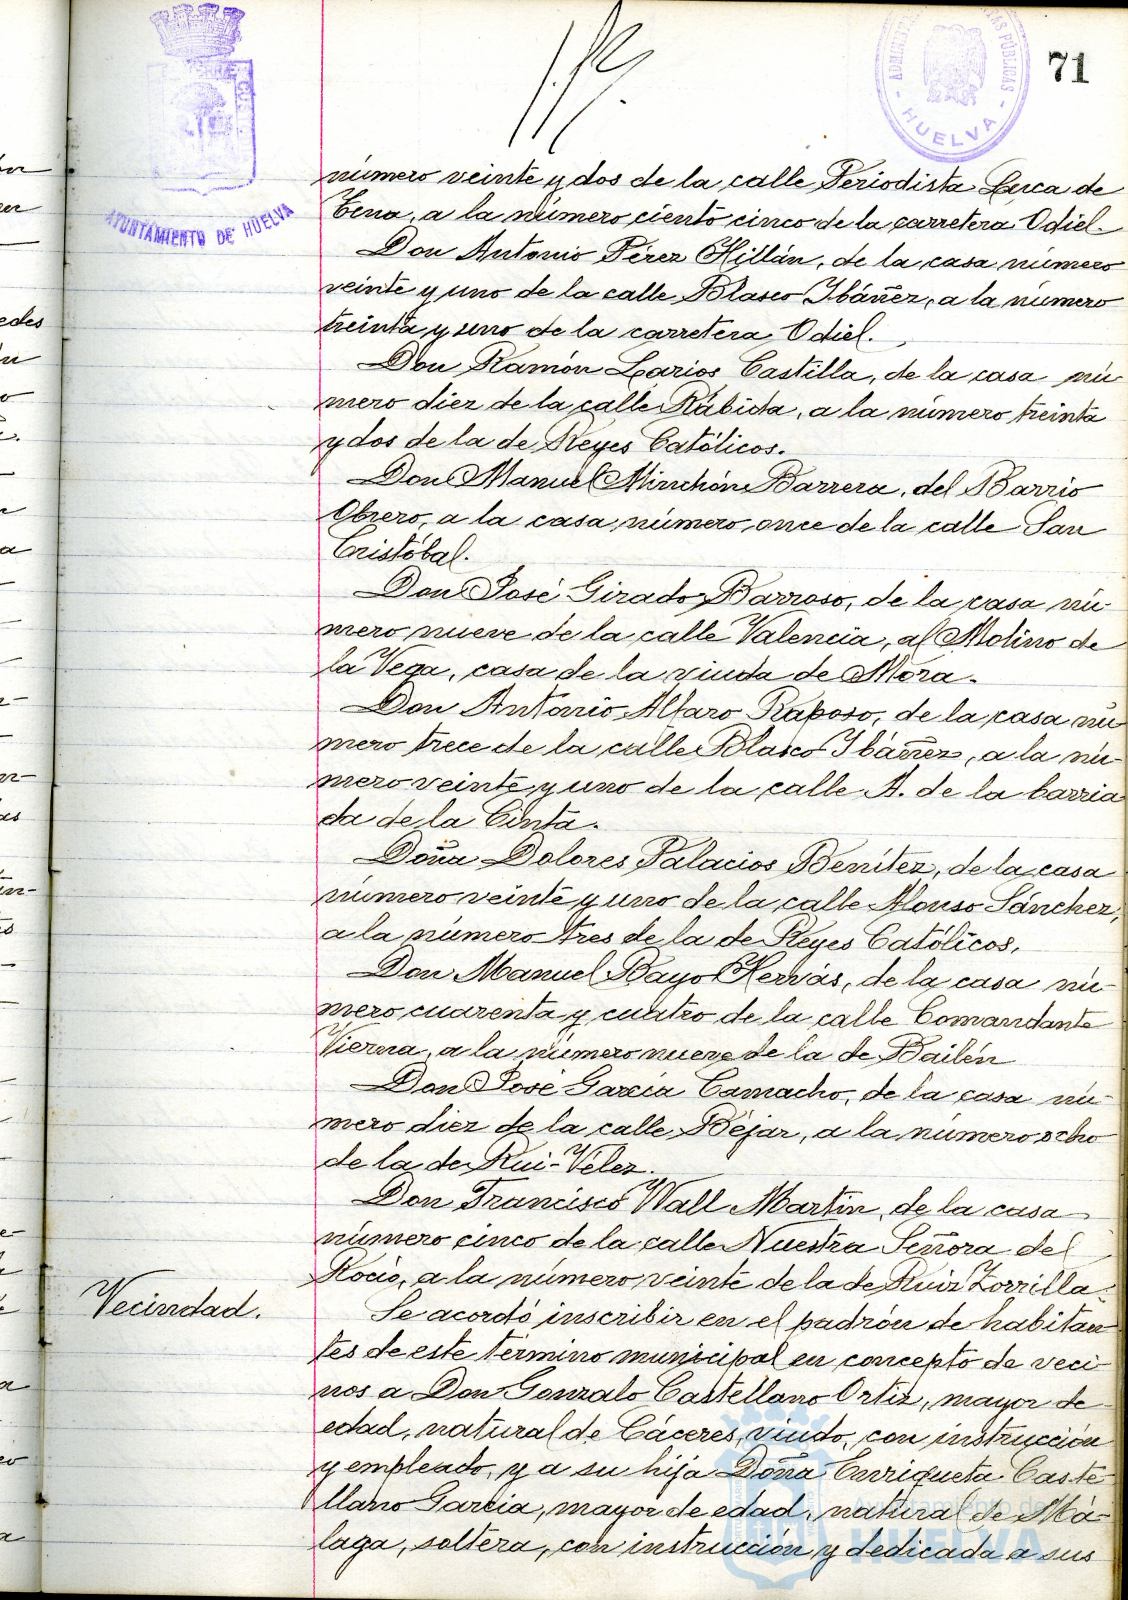 71
AYUNTAMIENTO DE HUELVA
HUELVA
número veinte y dos de la calle Periodista Luca de
Tena, a la número ciento cinco de la carretera Odiel.
Don Antonio Pérez Hillán, de la casa número
veinte y uno de la calle Blasco Ibáñez, a la número
treinta y uno de la carretera Odiel.
Don Ramón Larios Castilla, de la casa nú-
mero diez de la calle Rábida, a la número treinta
y dos de la de Reyes Católicos.
Don Manuel Minchón Barrera, del Barrio
Obrero, a la casa número once de la calle San
Cristóbal.
Don José Girado Barroso, de la casa nú-
mero nueve de la calle Valencia, al Molino de
la Vega, casa de la viuda de Mora.
Don Antonio Alfaro Raposo, de la casa nú
mero trece de la calle Blasco Ibáñez, a la nú-
mero veinte y uno de la calle A. de la barria
da de la Cinta.
Doña Dolores Palacios Benítez, de la casa
número veinte y uno de la calle Alonso Sánchez,
a la número tres de la de Reyes Católicos.
Don Manuel Bayo Hervás, de la casa nú-
mero cuarenta y cuatro de la calle Comandante
Vierna, a la número nueve de la de Bailén
Don José García Camacho, de la casa nú-
mero diez de la calle Béjar, a la número ocho
de la de Rui-Vélez.
Don Francisco Wall Martín, de la casa
número cinco de la calle Nuestra Señora del
Rocío, a la número veinte de la de Ruiz Zorrilla.
Vecindad.
Se acordó inscribir en el padrón de habitan
tes de este término municipal en concepto de veci-
nos a Don Gonzalo Castellano Ortiz, mayor de
edad, natural de Cáceres, viudo, con instrucción
y empleado, y a su hija Doña Enriqueta Caste-
llano García, mayor de edad, natural de Má-
laga, soltera, con instrucción y dedicada a sus
Ayuntamiento de
HUELVA